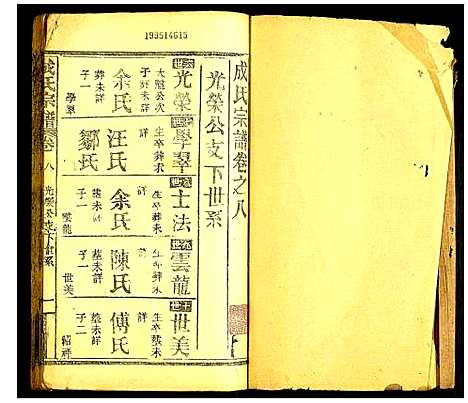 199514615
成氏宗譜卷之八
光榮公支下世系
光榮
大冠公次
子
葬未詳
余氏
葬未詳
子一
學舉
學舉
生卒葬未
詳
汪氏
鄒氏
士法
生卒葬未
詳
余氏
墓未詳
子一
雲龍
雲龍
生卒葬未
詳
陳氏
墓未詳
子一
世美
世美
生卒墓未
詳
傅氏
墓未詳
子二
紹祥
成氏宗譜卷
八
光榮公支下世系
一